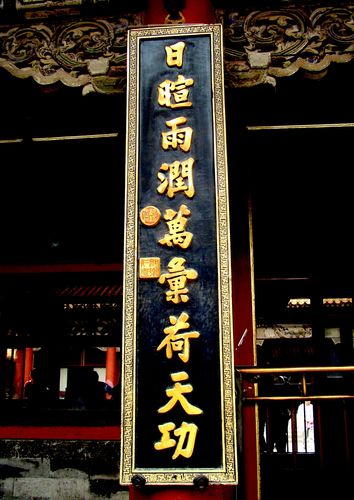 日暄雨潤萬彙荷天功